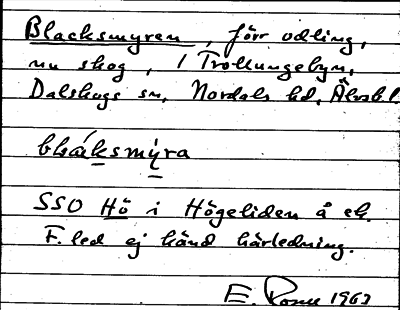 Blacksmyren, förr odling,
nu skog, i Trollungebyn,
Dalskogs sn, Nordals hd, Älvsbl
blɑ́ksmy̗ra
SSO Hö i Högeliden å ek.
F. led ej känd härledning.
E. 1963